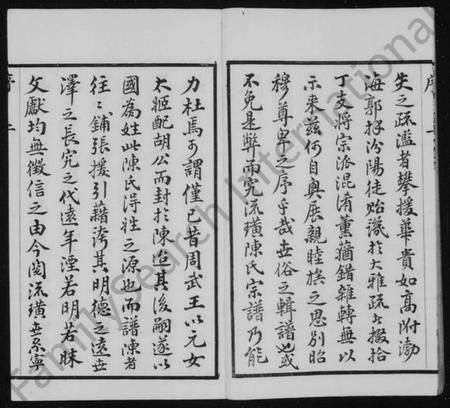 失之疏濫者攀援華貴如高附渤
海郭拜汾陽徒貽譏於大雅疏者掇拾
丁支將宗派混淆薰蕕錯雜轉無以
示來茲何自興展親睦族之思別昭
穆尊卑之序乎哉世俗之輯譜也或
不免是弊而究流璜陳氏宗譜乃能
力杜焉可謂僅已昔周武王以元女
太姬配胡公而封於陳迨其後嗣遂以
國為姓此陳氏得姓之源也而譜陳者
往往鋪張援引藉誇其明德之遠世
澤之長究之代遠年湮若明若昧
文獻均無徵信之由今閱流璜世系寧
序 二
FamilySearch International